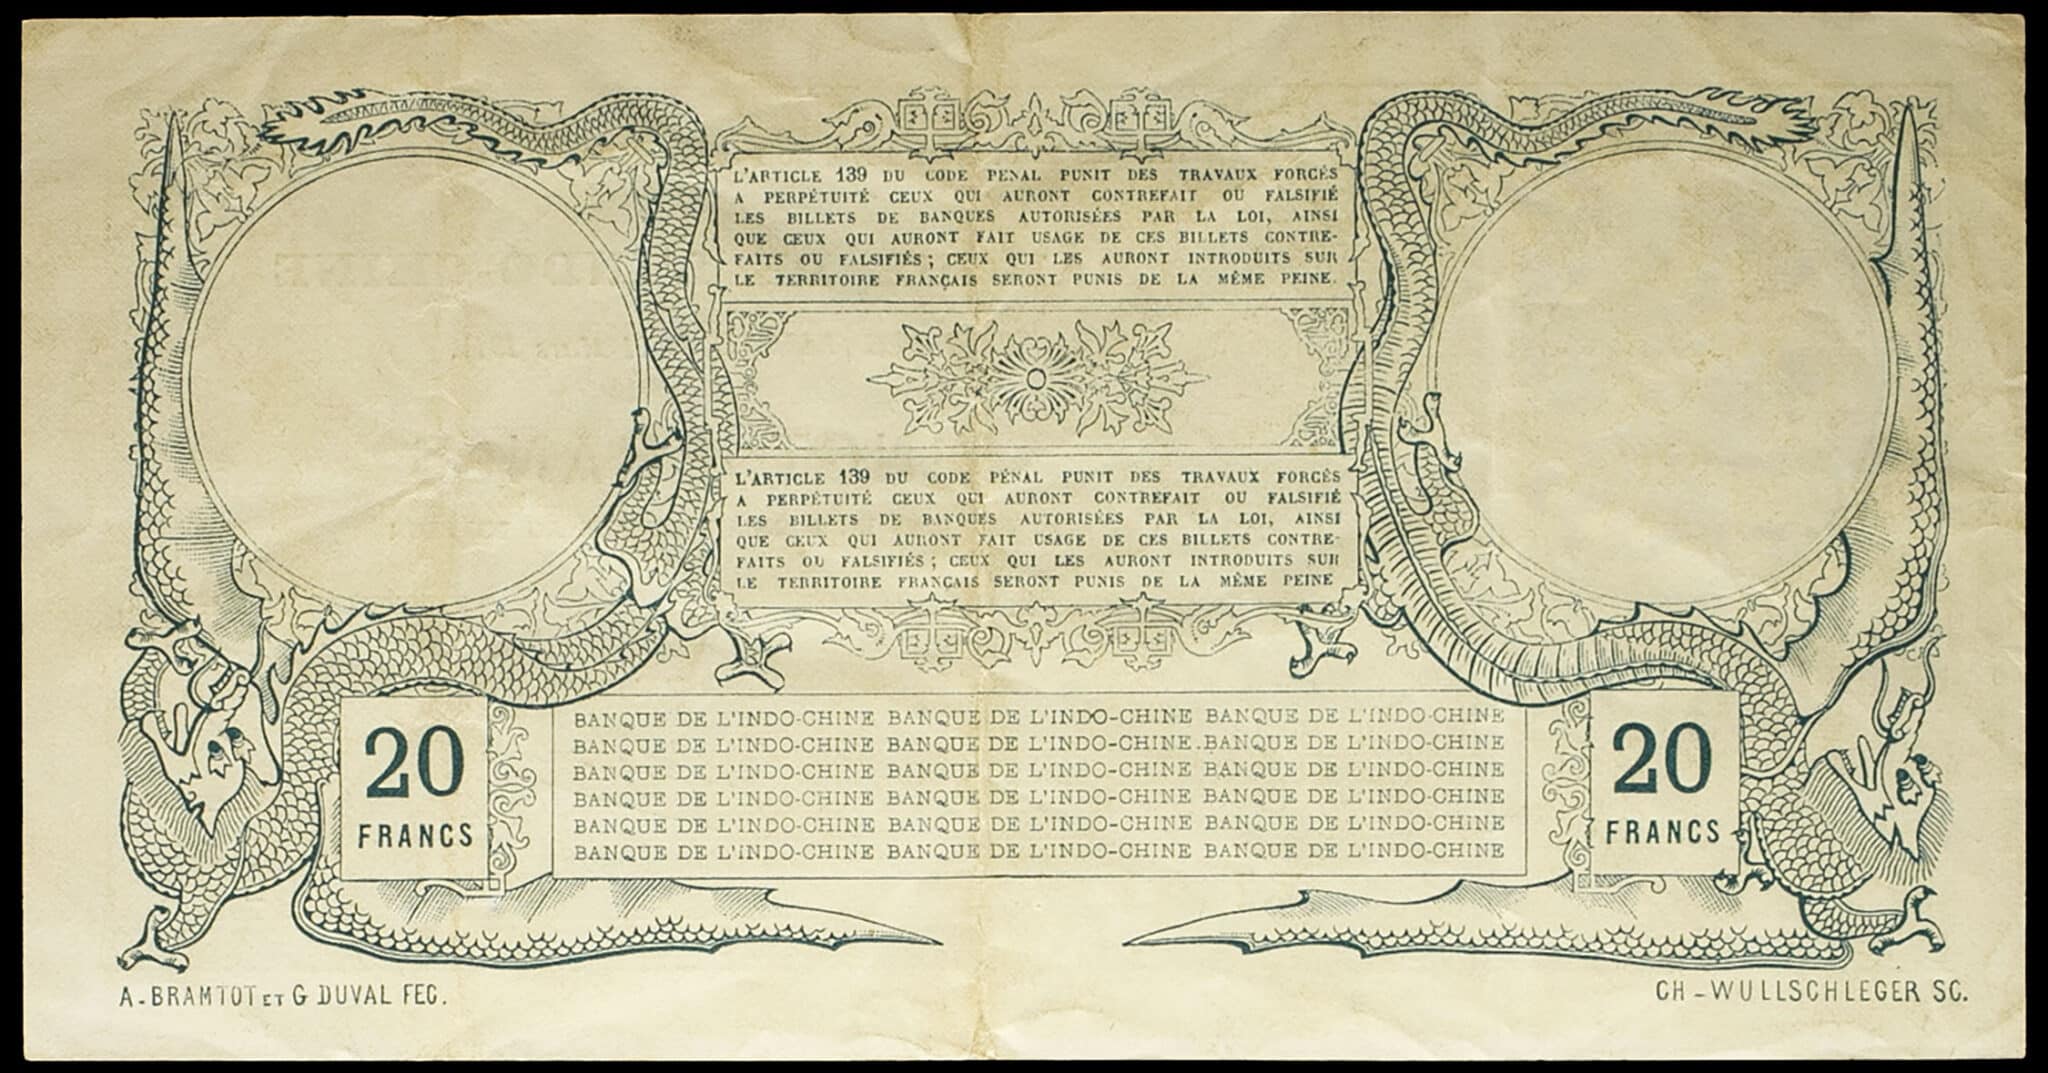 L'ARTICLE 139 DU CODE PENAL PUNIT DES TRAVAUX FORCÉS
A PERPÉTUITÉ CEUX QUI AURONT CONTREFAIT OU FALSIFIÉ
LES BILLETS DE BANQUES AUTORISÉES PAR LA LOI, AINSI
QUE CEUX QUI AURONT FAIT USAGE DE CES BILLETS CONTRE-
FAITS OU FALSIFIÉS; CEUX QUI LES AURONT INTRODUITS SUR
LE TERRITOIRE FRANÇAIS SERONT PUNIS DE LA MÊME PEINE.
L'ARTICLE 139 DU CODE PÉNAL PUNIT DES TRAVAUX FORCÉS
A PERPÉTUITÉ CEUX QUI AURONT CONTREFAIT OU FALSIFIÉ
LES BILLETS DE BANQUES AUTORISÉES PAR LA LOI, AINSI
QUE CEUX QUI AURONT FAIT USAGE DE CES BILLETS CONTRE-
FAITS OU FALSIFIÉS; CEUX QUI LES AURONT INTRODUITS SUR
LE TERRITOIRE FRANÇAIS SERONT PUNIS DE LA MÊME PEINE
20
FRANCS
BANQUE DE L'INDO-CHINE BANQUE DE L'INDO-CHINE BANQUE DE L'INDO-CHINE
BANQUE DE L'INDO-CHINE BANQUE DE L'INDO-CHINE.BANQUE DE L'INDO-CHINE
BANQUE DE L'INDO-CHINE BANQUE DE L'INDO-CHINE BANQUE DE L'INDO-CHINE
BANQUE DE L'INDO-CHINE BANQUE DE L'INDO-CHINE BANQUE DE L'INDO-CHINE
BANQUE DE L'INDO-CHINE BANQUE DE L'INDO-CHINE BANQUE DE L'INDO-CHINE
BANQUE DE L'INDO-CHINE BANQUE DE L'INDO-CHINE BANQUE DE L'INDO-CHINE
20
FRANCS
A-BRAMTOT ET G DUVAL FEC.
CH-WULLSCHLEGER SC.